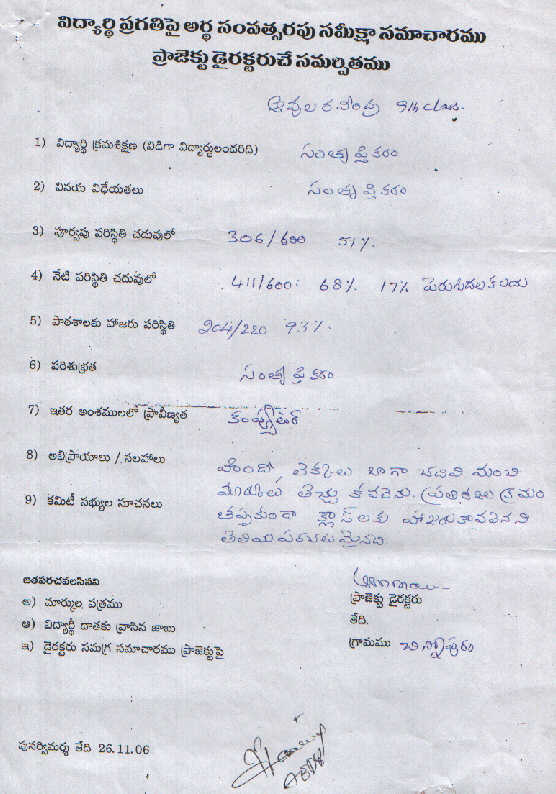 విద్యార్థి ప్రగతిపై అర్థ సంపత్సరపు సమీక్షా సమాచారము
ప్రాజెక్టు డైరక్టరుచే సమర్పితము
9th class.
1) విద్యార్థి క్రమశిక్షణ (విడిగా విద్యార్థులందరిది) సంతృప్తికరం
2) వినయ విధేయతలు సంతృప్తికరం
3) పూర్వపు పరిస్థితి చదువులో 306/600 51%
4) నేటి పరిస్థితి చదువులో 411/600: 68% 17% పెరుగుదల కలదు
5) పాఠశాలకు హాజరు పరిస్థితి 204/220 93%
6) పరిశుభ్రత సంతృప్తికరం
7) ఇతర అంశములలో ప్రావీణ్యత కంప్యూటర్
8) అభిప్రాయాలు / సలహాలు హిందీ, లెక్కలు బాగా చదివి మంచి
9) కమిటీ సభ్యుల సూచనలు మార్కులు తెచ్చు కోవలెను. క్రమం
తప్పకుండా క్లాస్‌లకు హాజరుకావలెనని
తెలియపరచడమైనది
జతపరచవలసినవి
అ) మార్కుల పత్రము
ఆ) విద్యార్థి దాతకు వ్రాసిన జాబు
ఇ) డైరక్టరు సమగ్ర సమాచారము ప్రాజెక్టుపై
ప్రాజెక్టు డైరక్టరు
తేది.
గ్రామము
పునర్విమర్శ తేది 26.11.06